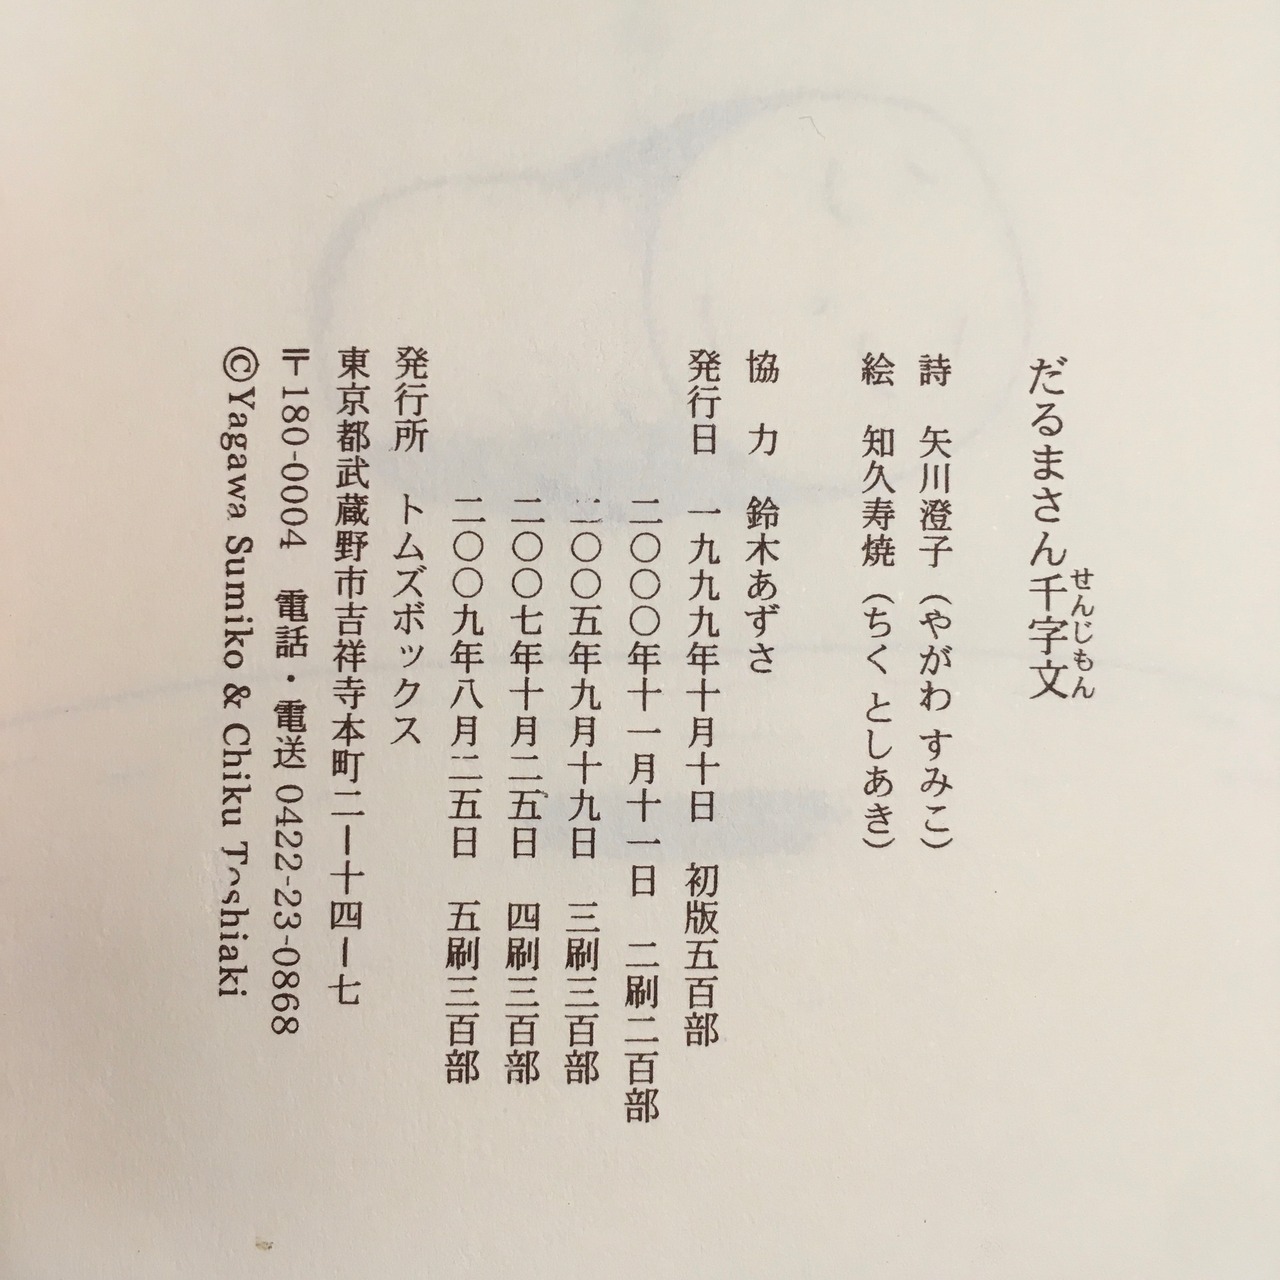 だるまさん千字文
せんじもん
詩 矢川澄子（やがわ すみこ）
絵 知久寿焼（ちく としあき）
協力 鈴木あずさ
発行日 一九九九年十月十日 初版五百部
二〇〇〇年十一月十一日 二刷二百部
二〇〇五年九月十九日 三刷三百部
二〇〇七年十月二五日 四刷三百部
二〇〇九年八月二五日 五刷三百部
発行所 トムズボックス
東京都武蔵野市吉祥寺本町二ー十四ー七
〒180-0004 電話・電送 0422-23-0868
©Yagawa Sumiko & Chiku Toshiaki